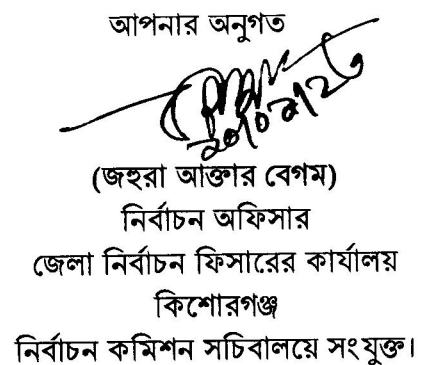 আপনার অনুগত
(জহুরা আক্তার বেগম)
নির্বাচন অফিসার
জেলা নির্বাচন ফিসারের কার্যালয়
কিশোরগঞ্জ
নির্বাচন কমিশন সচিবালয়ে সংযুক্ত।